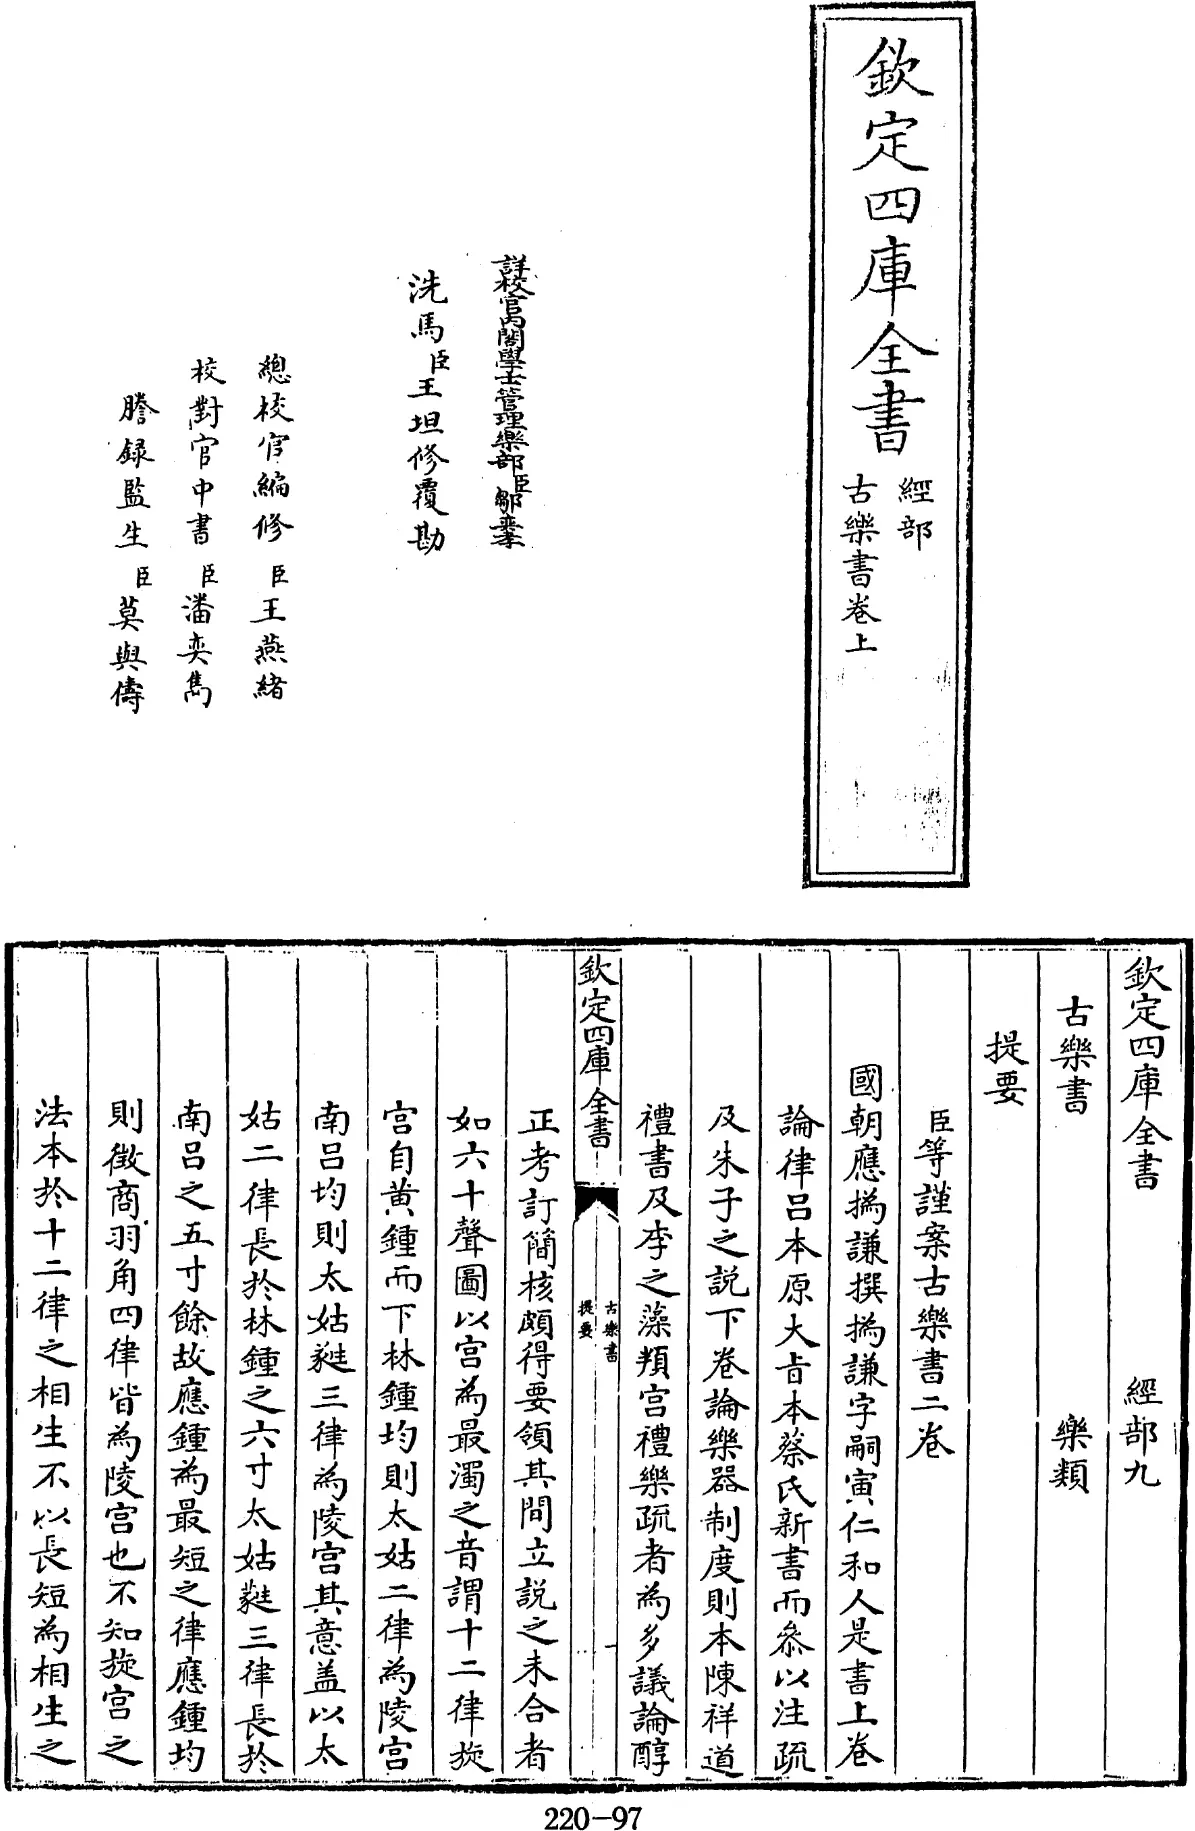 欽定四庫全書
經部
古樂書卷上
詳校官内閣學士管理樂部臣鄒奕孝
洗馬臣王坦修覆勘
總校官編修臣王燕緒
校對官中書臣潘奕雋
謄録監生臣莫與儔
欽定四庫全書 經部九
古樂書 樂類
提要
臣等謹案古樂書二卷
國朝應撝謙撰撝謙字嗣寅仁和人是書上卷
論律呂本原大旨本蔡氏新書而叅以注疏
及朱子之説下卷論樂器制度則本陳祥道
禮書及李之藻頖宫禮樂疏者為多議論醇
欽定四庫全書
古樂書
提要
一
正考訂簡核頗得要領其間立説之未合者
如六十聲圖以宫為最濁之音謂十二律旋
宫自黄鍾而下林鍾均則太姑二律為陵宫
南呂均則太姑蕤三律為陵宫其意盖以太
姑二律長於林鍾之六寸太姑蕤三律長於
南呂之五寸餘故應鍾為最短之律應鍾均
則徵商羽角四律皆為陵宫也不知旋宫之
法本於十二律之相生不以長短為相生之
220-97